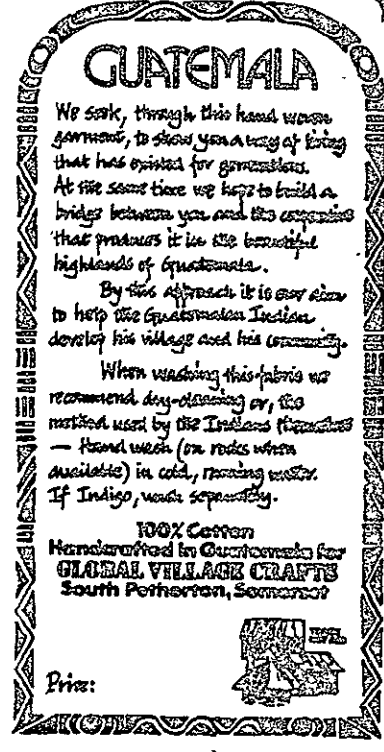 GUATEMALA
We seek, through this hand woven
garment, to show you a way of living
that has existed for generations.
At the same time we hope to build a
bridge between you and the
that produces it in the beautiful
highlands of Guatemala.
By this approach it is our aim
to help the Guatemalan Indian
develop his village and his community.
When washing this fabric we
recommend dry-cleaning or, the
method used by the Indians themselves
— Hand wash (on rocks when
available) in cold, running water.
If Indigo, wash separately.
100% Cotton
Handcrafted in Guatemala for
GLOBAL VILLAGE CRAFTS
South Petherton, Somerset
Price: